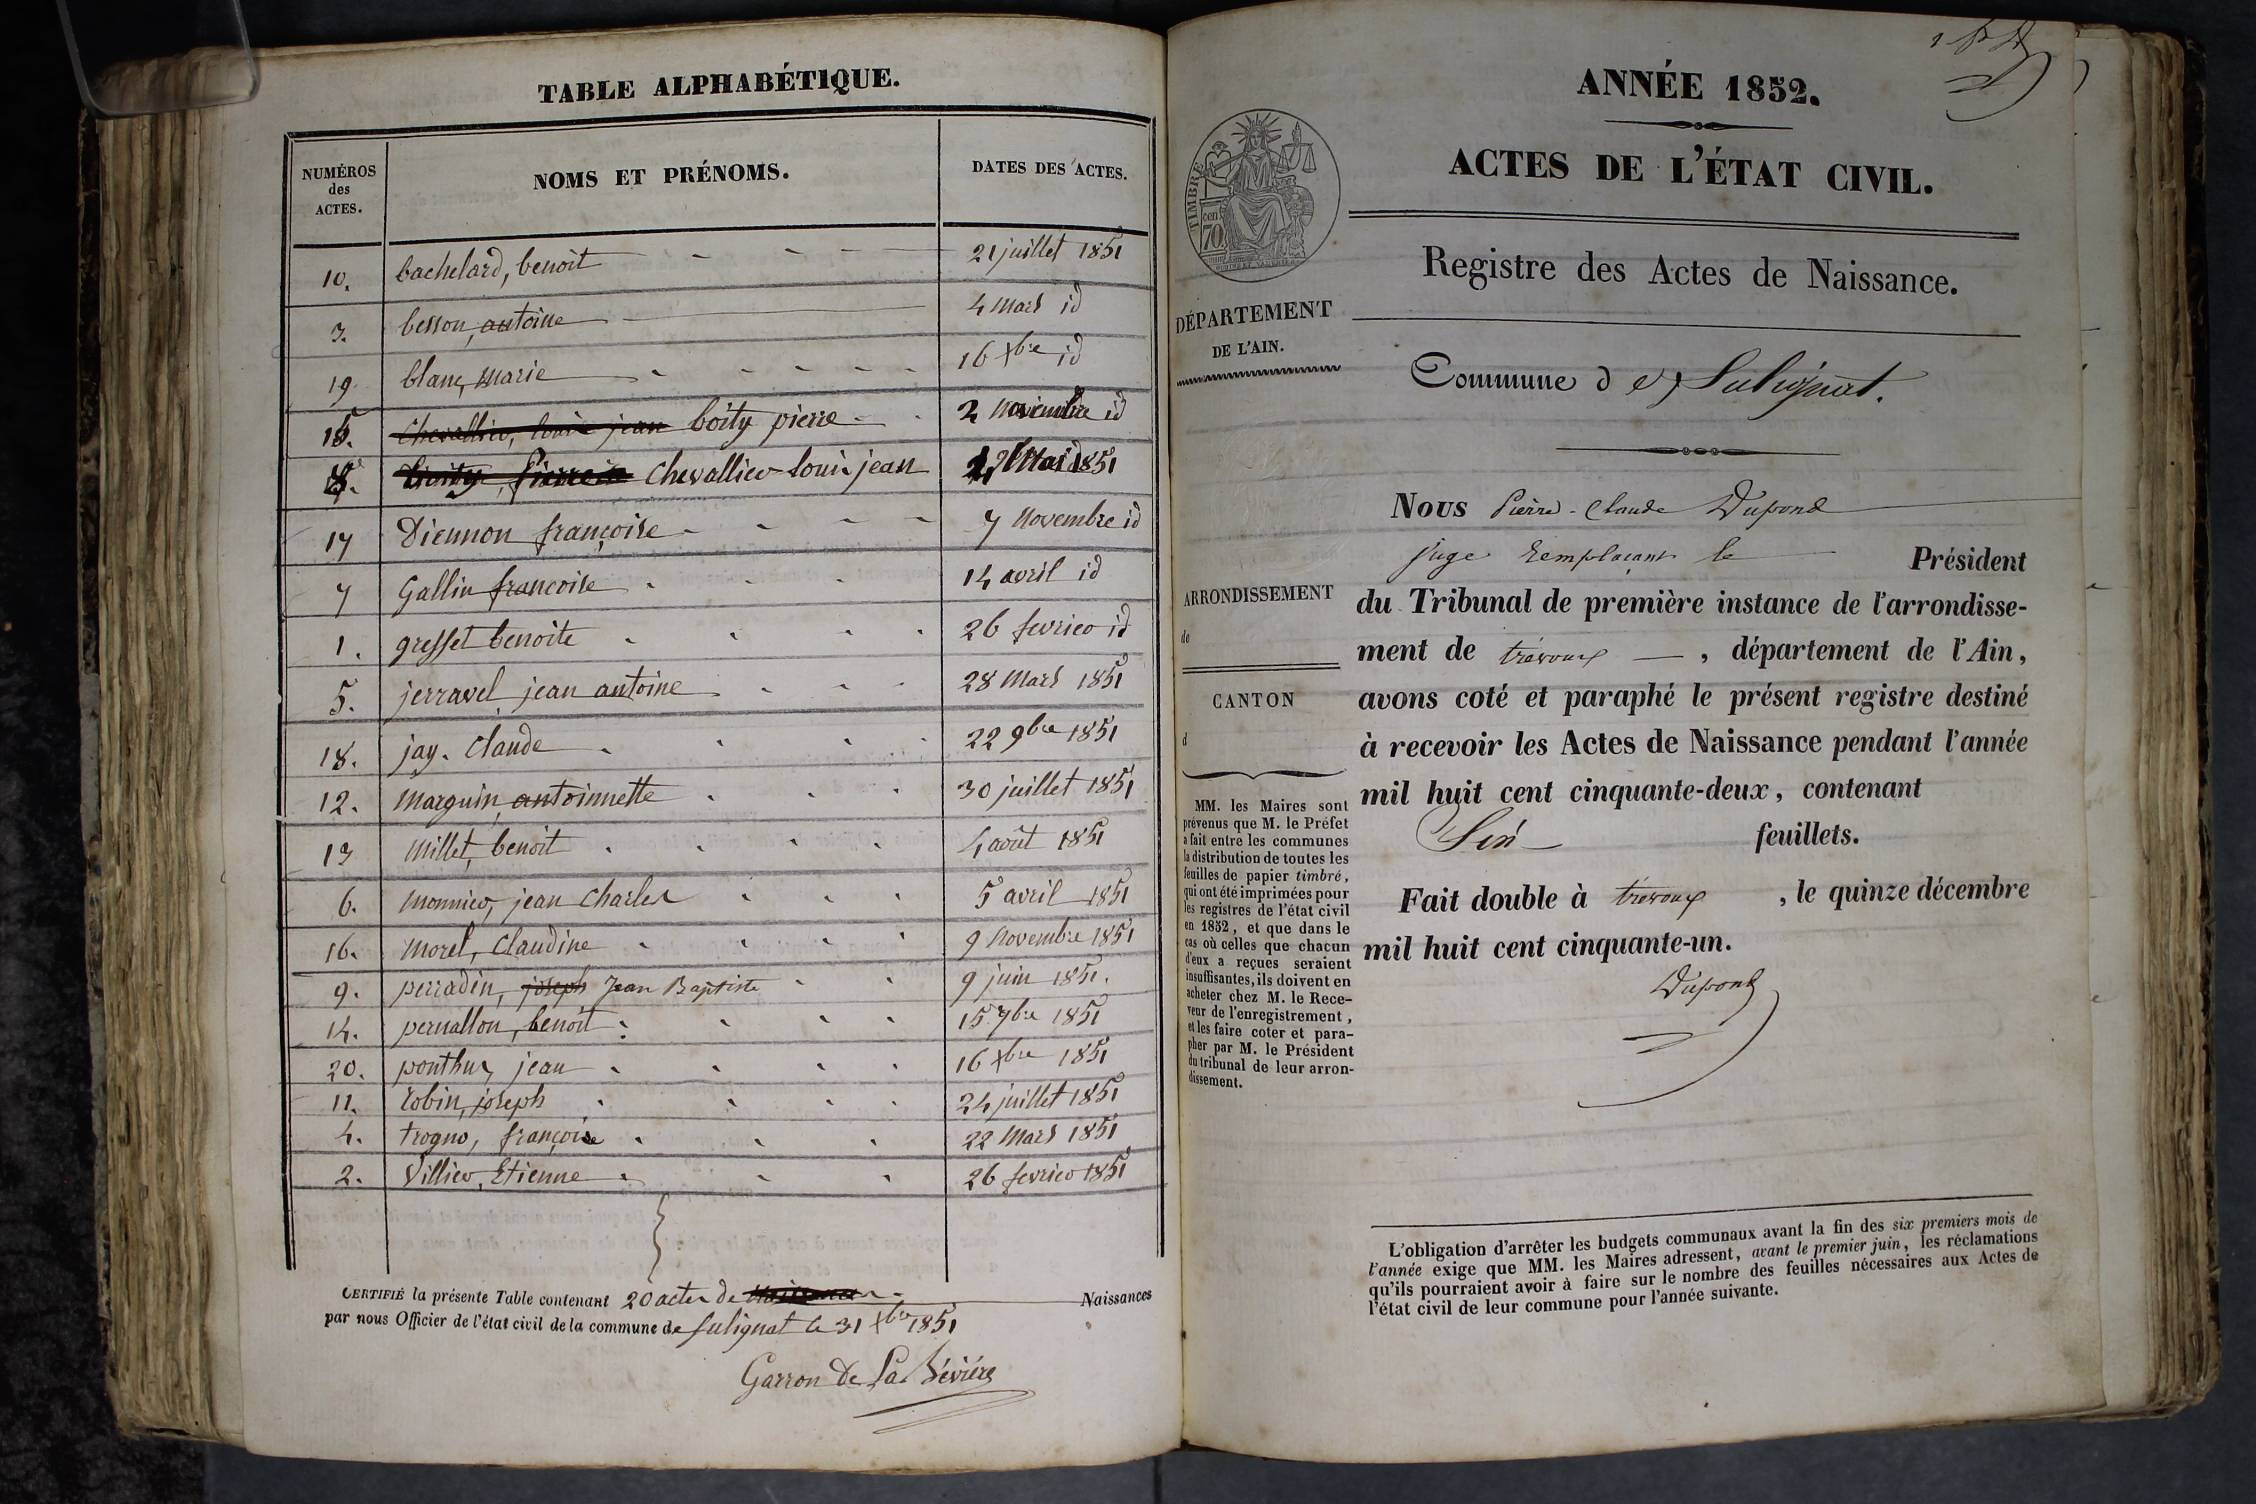 TABLE ALPHABÉTIQUE.
NUMÉROS des ACTES. NOMS ET PRÉNOMS. DATES DES ACTES.
10. bachelard, benoit 21 juillet 1851
3. besson, antoine 4 Mars id
19. blanc, Marie 16 xbre id
15. Chevallier, louis jean boity pierre 2 Novembre id
8. Chevallier louis jean Mai 1851
17 Diennon françoise 7 Novembre id
7 Gallin françoise 14 avril id
1. gresset benoite 26 fevrier id
5. jerravel, jean antoine 28 Mars 1851
18. jay. Claude 22 9bre 1851
12. Marguin, antoinnette 30 juillet 1851
13 Millet, benoit 4 août 1851
6. Monnier, jean Charles 5 avril 1851
16. Morel, Claudine 9 Novembre 1851
9. perradin, joseph Jean Baptiste 9 juin 1851.
14. pernallon, benoit 15 7bre 1851
20. ponthus, jean 16 xbre 1851
11. robin, joseph 24 juillet 1851
4. trogno, françoise 22 Mars 1851
2. Villier, Etienne 26 fevrier 1851
CERTIFIÉ la présente Table contenant 20 actes de Naissances
par nous Officier de l'état civil de la commune de Sulignat le 31 xbre 1851
Garron De La Bévière
ANNÉE 1852.
ACTES DE L'ÉTAT CIVIL.
TIMBRE
cen
70
Registre des Actes de Naissance.
DÉPARTEMENT
DE L'AIN.
Commune de Sulignat.
Nous Pierre-Claude Dupond
juge remplaçant le Président
du Tribunal de première instance de l'arrondisse-
ment de trévoux, département de l'Ain,
avons coté et paraphé le présent registre destiné
à recevoir les Actes de Naissance pendant l'année
mil huit cent cinquante-deux, contenant
Six feuillets.
Fait double à trévoux, le quinze décembre
mil huit cent cinquante-un.
Dupond
ARRONDISSEMENT
de
CANTON
d
MM. les Maires sont
prévenus que M. le Préfet
a fait entre les communes
la distribution de toutes les
feuilles de papier timbré,
qui ont été imprimées pour
les registres de l'état civil
en 1852, et que dans le
cas où celles que chacun
d'eux a reçues seraient
insuffisantes, ils doivent en
acheter chez M. le Rece-
veur de l'enregistrement,
et les faire coter et para-
pher par M. le Président
du tribunal de leur arron-
dissement.
L'obligation d'arrêter les budgets communaux avant la fin des six premiers mois de
l'année exige que MM. les Maires adressent, avant le premier juin, les réclamations
qu'ils pourraient avoir à faire sur le nombre des feuilles nécessaires aux Actes de
l'état civil de leur commune pour l'année suivante.